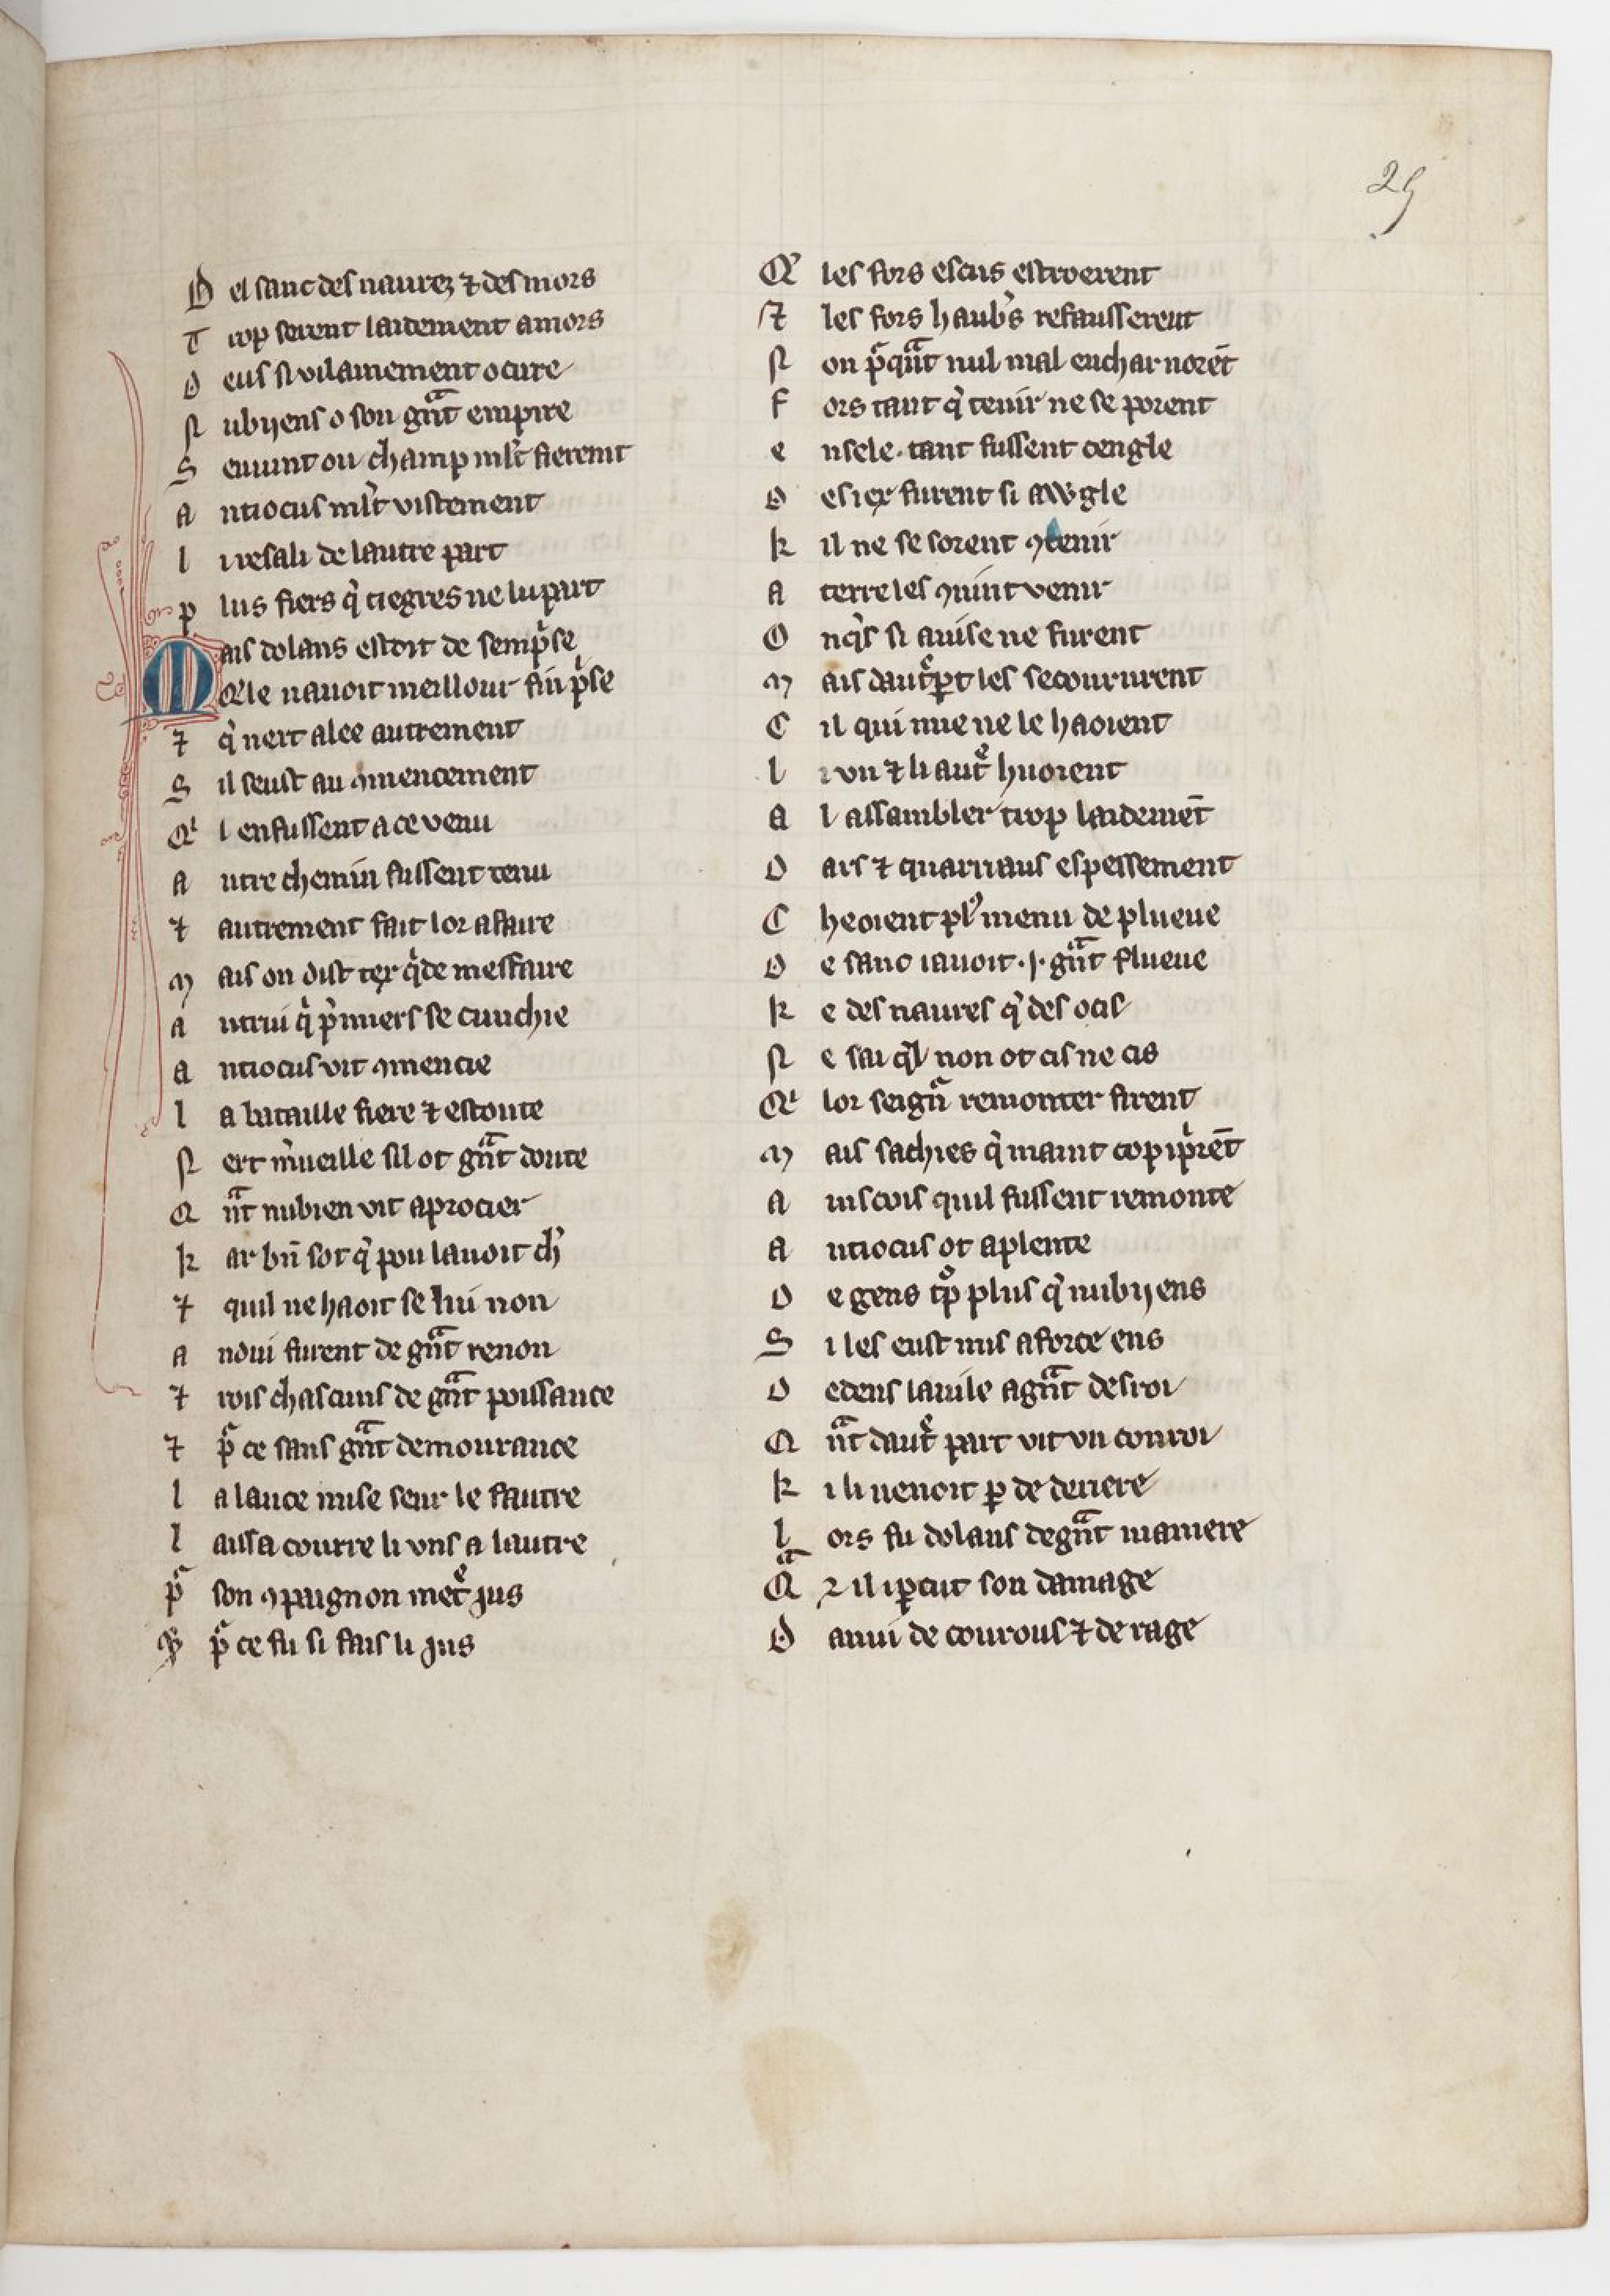 29
D el sanc des naurez ⁊ des mors
T rop serent laidement amors
D eus si vilainement ocire
N ubyens o son gᵃnt empire
S euuint ou champ ml't fieremt
A ntiocus ml't vistement
l i resali de lautre part
p lus fiers q̇ tiegres ne lupart
M ais dolans estoit de semp̾se
Q̾le nauoit meillour fin p̾se
⁊ q̇ nert alee autrement
S il seust au ꝯmencement
Qⁱ l en fussent a ce venu
A utre chemin fussent tenu
⁊ autrement fait lor afaire
M ais on dist ter q̇ de mesfaire
A utrui q̇ p̾miers se cunchie
A ntiocus vit ꝯmencie
l a bataille fiere ⁊ estoute
N ert m̾ueille sil ot gᵃnt doute
Q ᵃnt nubien vit aprocier
K ar bn̄ sot q̇ pou lauoit ch̾
⁊ quil ne haoit se lui non
A ndui furent de gᵃnt renon
⁊ rois chascuns de gᵃnt poissance
⁊ pᵃ ce sans gᵃnt demourance
l a lance mise seur le fautre
l aissa courre li vns a lautre
pᵃ son ꝯpaignon metᵉ jus
pᵃ ce fu si fais li jus
Q̾ les fors escus estroerent
⁊ les fors haub̾s refausserent
N on pᵃqᵃnt nul mal en char norēt
F ors tant q̾ tenir ne se porent
e n sele. tant fussent cengle
D es ier furent si awgle
K il ne se sorent ꝯtenir
A terre les ꝯuint venir
O nq̾s si auise ne furent
M ais dautᵉ ꝑt les secoururent
C il qui mie ne le haoient
l i vn ⁊ li autᵉ huoient
A l assambler trop laidemēt
D ars ⁊ quarriaus espessement
C heoient plꝰ menu de plueue
D e sanc i auoit .j. gᵃnt flueue
K e des naures q̾ des ocis
N e sai q̾l non ot cis ne cis
Qⁱ lor seign̾ remonter firent
M ais sachies q̾ maint cop i p̾rēt
A inscois quil fussent remonte
A ntiocus ot a plente
D e gens tᵒp plus q̾ nubyens
S i les eust mis a force ens
D edens la uile a gᵃnt desroi
Q ᵃnt dautᵉ part vit vn conroi
K i li uenoit ꝑ de deriere
l ors fu dolans de gᵃnt maniere
Qᵃ ꝛ il iꝑcut son damage
D anui de courous ⁊ de rage